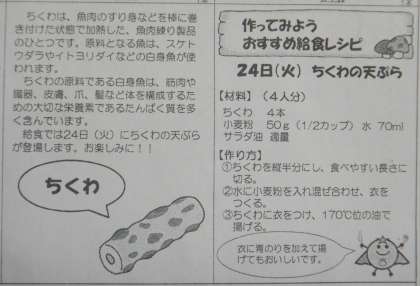 ちくわは、魚肉のすり身などを棒に
巻き付けた状態で加熱した、魚肉練り製品
のひとつです。原料となる魚は、スケト
ウダラやイトヨリダイなどの白身魚が使
われます。
ちくわの原料である白身魚は、筋肉や
臓器、皮膚、爪、髪など体を構成するた
めの大切な栄養素であるたんぱく質を多
く含んでいます。
給食では24日(火)にちくわの天ぷら
が登場します。お楽しみに!!
ちくわ
作ってみよう
おすすめ給食レシピ
24日(火) ちくわの天ぷら
【材料】(4人分)
ちくわ 4本
小麦粉 50g(1/2カップ) 水 70ml
サラダ油 適量
【作り方】
①ちくわを縦半分にし、食べやすい長さに
切る。
②水に小麦粉を入れ混ぜ合わせ、衣を
つくる。
③ちくわに衣をつけ、170℃位の油で
揚げる。
衣に青のりを加えて揚
げてもおいしいです。